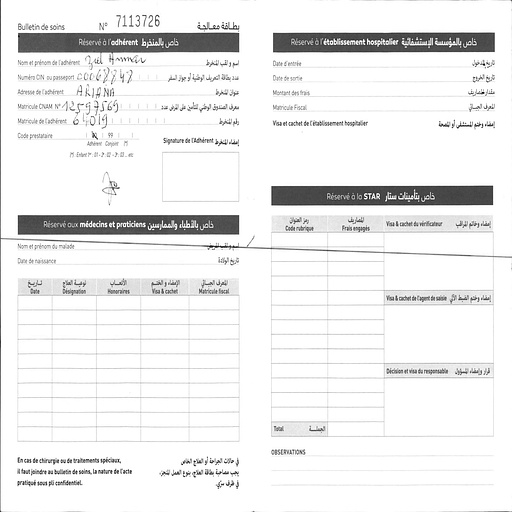 Bulletin de soins N° 7113726 بطاقة معالجة
Réservé à l'adhérent خاص بالمنخرط
Nom et prénom de l'adhérent اسم و لقب المنخرط
Numéro CIN ou passeport عدد بطاقة التعريف الوطنية أو جواز السفر
Adresse de l'adhérent ARIANA عنوان المنخرط
Matricule CNAM N° 12597569 معرف الصندوق الوطني للتأمين على المرض عدد
Matricule de l'adhérent 64019 رقم المنخرط
Code prestataire 99
Adhérent Conjoint (*)
Signature de l'Adhérent إمضاء المنخرط
(*) : Enfant 1er : 01 - 2 : 02 - 3 : 03 ... etc
Réservé aux médecins et praticiens خاص بالأطباء والممارسين
Nom et prénom du malade اسم و لقب المريض
Date de naissance تاريخ الولادة
تاريخ نوعية العلاج الأتعاب الإمضاء و الختم المعرف الجبائي
Date Désignation Honoraires Visa & cachet Matricule fiscal
En cas de chirurgie ou de traitements spéciaux,
il faut joindre au bulletin de soins, la nature de l'acte
pratiqué sous pli confidentiel.
في حالات الجراحة أو العلاج الخاص
يجب مصاحبة بطاقة العلاج، بنوع العمل المنجز،
في ظرف سري.
Réservé à l'établissement hospitalier خاص بالمؤسسة الإستشفائية
Date d'entrée تاريخ الدخول
Date de sortie تاريخ الخروج
Montant des frais مقدار المصاريف
Matricule Fiscal المعرف الجبائي
Visa et cachet de l'établissement hospitalier إمضاء وختم المستشفى أو المصحة
Réservé à la STAR خاص بتأمينات ستار
رمز العنوان المصاريف
Code rubrique Frais engagés
Visa & cachet du vérificateur إمضاء وخاتم المراقب
Visa & cachet de l'agent de saisie إمضاء وختم الضبط الآلي
Décision et visa du responsable قرار وإمضاء المسؤول
Total الجملة
OBSERVATIONS